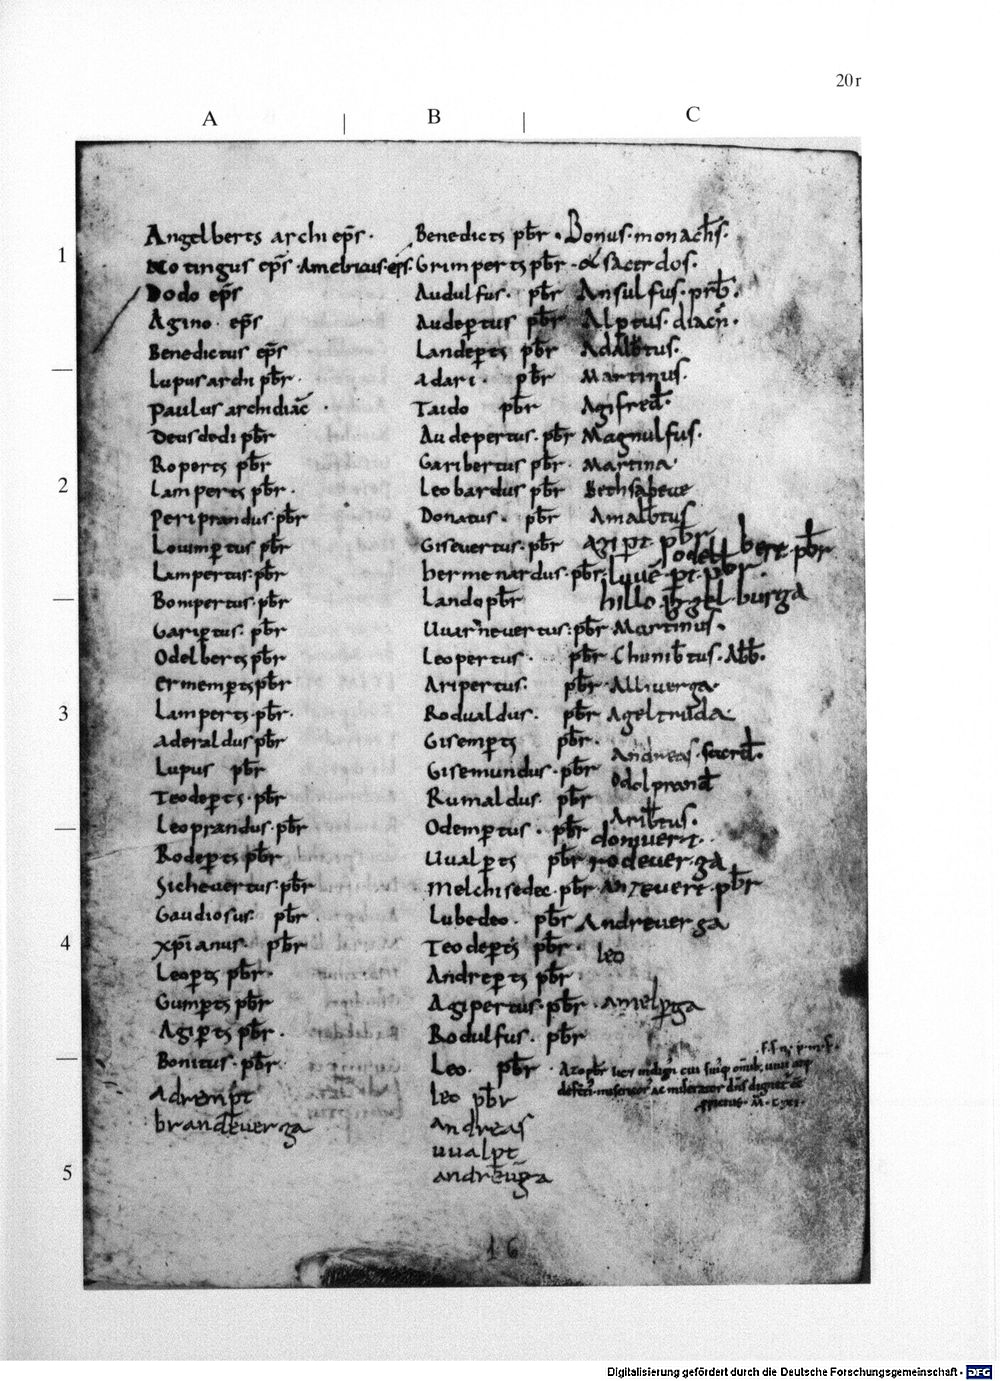 20r
A | B | C
1
2
3
4
5
Angelberts archi ep̄s ·
Notingus ep̄s · Amelricus · ep̄s ·
Dodo ep̄s
Agino · ep̄s
Benedictus ep̄s
Lupus archi pb̄r ·
Paulus archidiac̄ ·
Deusdedi pb̄r
Roperts pb̄r
Lamperts pb̄r ·
Periprandus · pb̄r
Louuꝑtus pb̄r
Lampertus · pb̄r
Bompertus · pb̄r
Gariꝑtus · pb̄r
Odelberts pb̄r
Ermemꝑts pb̄r
Lamperts · pb̄r ·
Aderaldus pb̄r
Lupus pb̄r
Teodeꝑts · pb̄r
Leoprandus · pb̄r
Rodeꝑts pb̄r
Sichevertus · pb̄r
Gaudiosus · pb̄r
xp̄ianus · pb̄r
Leoꝑts pb̄r ·
Gumꝑts pb̄r
Agiꝑts pb̄r ·
Bonitus · pb̄r ·
Adremꝑt
brandeverga
Benedicts pb̄r ·
Grimperts pb̄r ·
Audulfus · pb̄r
Audeꝑtus pb̄r
Landeꝑts pb̄r
Adari · pb̄r
Taido pb̄r
Audepertus · pb̄r
Garibertus pb̄r ·
Leobardus pb̄r
Donatus · pb̄r
Gisevertus · pb̄r
hermenardus · pb̄r ·
Lando pb̄r
Uuarnevertus : pb̄r ·
Leopertus · pb̄r
Aripertus · pb̄r
Rodualdus · pb̄r
Gisemꝑts pb̄r ·
Gisemundus · pb̄r
Rumaldus · pb̄r
Odemꝑtus · pb̄r
Uualꝑts pb̄r
Melchisedec · pb̄r ·
Lubedeo · pb̄r
Teodeꝑts pb̄r ·
Andreꝑts pb̄r
Agipertus · pb̄r ·
Rodulfus · pb̄r
Leo · pb̄r ·
leo pb̄r
andreas
uualꝑt
andreūga
Bonus · monach̄s ·
& sacerdos ·
Ansulfus · prb̄ ·
Alꝑtus · diacn̄ ·
Adalb̄tus ·
Martinus ·
Agifred ·
Magnulfus ·
Martina ·
Bethsabeue
Amalb̄tus
agiꝑt · pb̄r
odelbert · pb̄r
hillo · gelburga
Martinus ·
Chunib̄tus · Abb̄ ·
Alliuerga ·
Ageltruda ·
Andreas · sacerd ·
Odolprand
Arib̄tus ·
donuuert ·
rodeuerga
anzeuert · pb̄r
Andreuerga
leo
amelꝑga
16
Digitalisierung gefördert durch die Deutsche Forschungsgemeinschaft · DFG